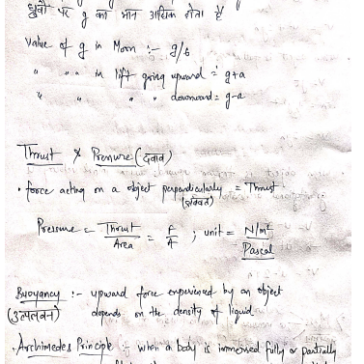 ध्रुवों पर g का मान अधिक होता है
Value of g in Moon :- g/6
" " " in lift going upward = g+a
" " " " downward = g-a
Thrust & Pressure (दबाव)
• force acting on a object perpendicularly = Thrust
(लंबवत)
Pressure = Thrust/Area = F/A ; unit = N/m² Pascal
Buoyancy :- upward force experienced by an object
(उत्पलवन) depends on the density of liquid.
• Archimedes Principle :- when a body is immersed fully or partially